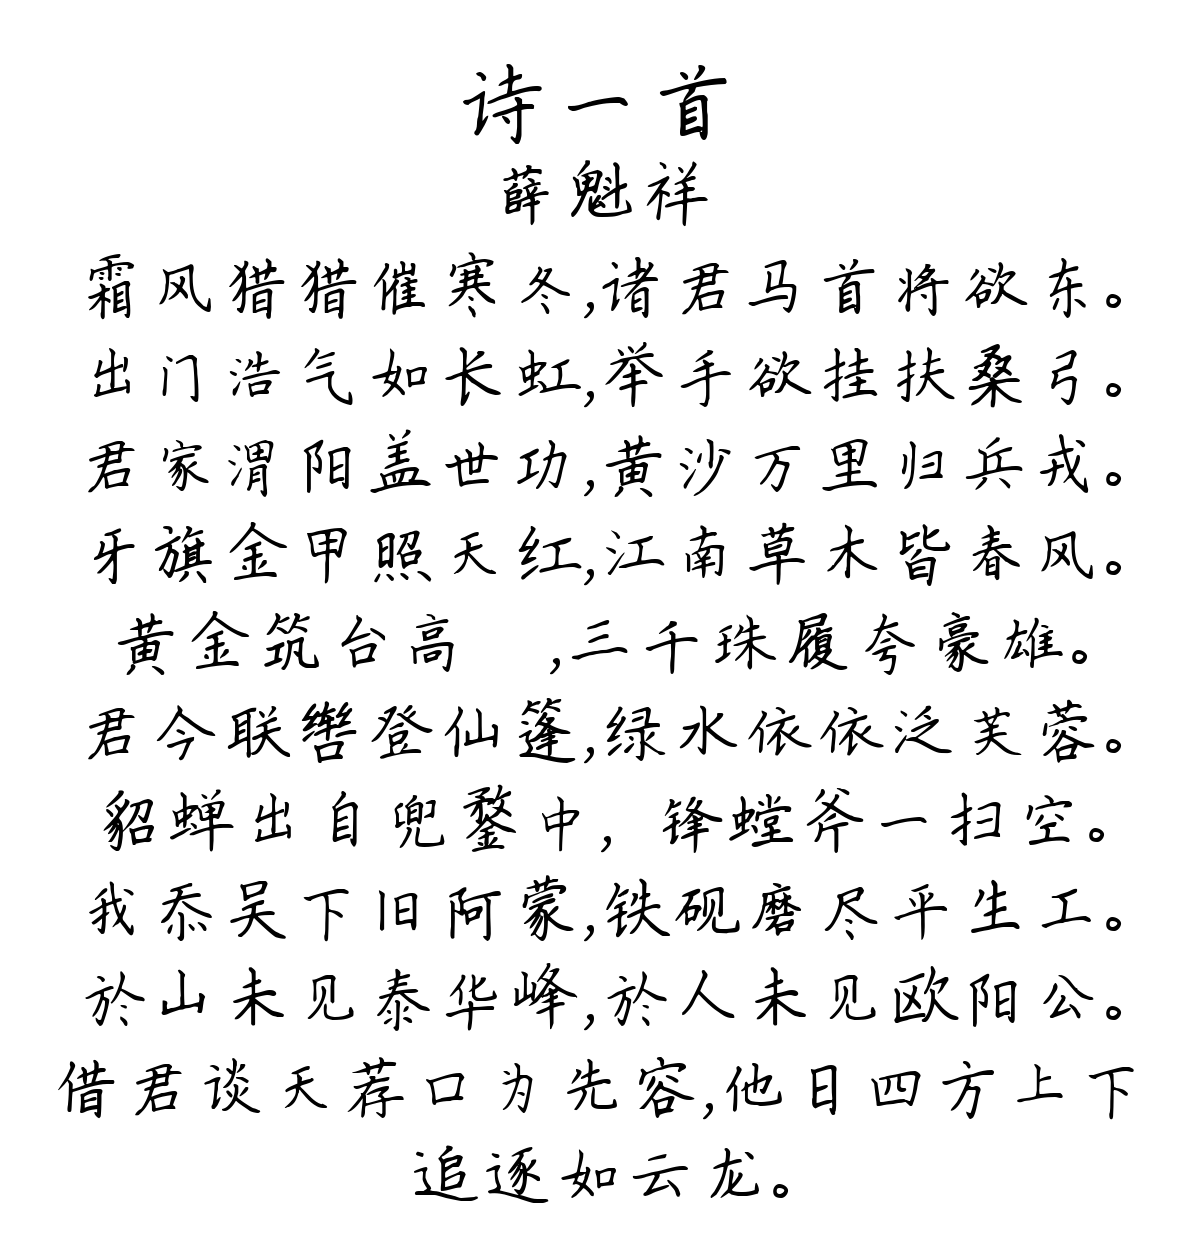 诗一首
薛魁祥
霜风猎猎催寒冬,诸君马首将欲东。
出门浩气如长虹,举手欲挂扶桑弓。
君家渭阳盖世功,黄沙万里归兵戎。
牙旗金甲照天红,江南草木皆春风。
黄金筑台高 ,三千珠履夸豪雄。
君今联辔登仙篷,绿水依依泛芙蓉。
貂蝉出自兜鍪中，锋螳斧一扫空。
我忝吴下旧阿蒙,铁砚磨尽平生工。
於山未见泰华峰,於人未见欧阳公。
借君谈天荐口为先容,他日四方上下
追逐如云龙。